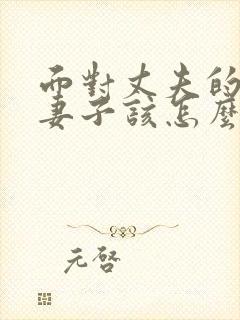 面對丈夫的
妻子該怎麼
元啓